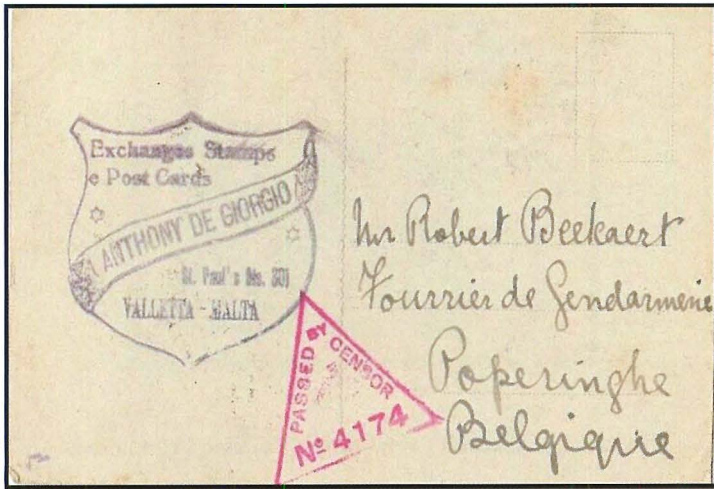 Exchanges Stamps
e Post Cards
ANTHONY DE GIORGIO
St. Paul's No. 301
VALLETTA - MALTA
PASSED BY CENSOR
No 4174
Mr Robert Beekaert
Fourrier de Gendarmerie
Poperinghe
Belgique